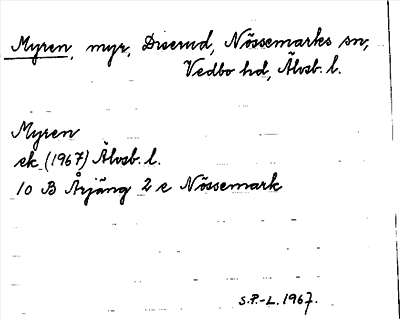 Myren, myr, Diserud, Nössemarks sn,
Vedbo hd, Älvsb. l.
Myren
ek. (1967) Älvsb. l.
10 B Årjäng 2 e Nössemark
S.P.-L. 1967.